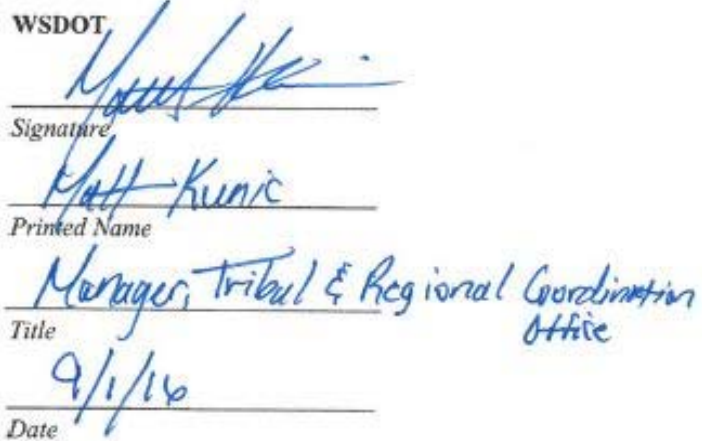 WSDOT
Signature
Matt Kunic
Printed Name
Manager, Tribal & Regional Coordination
Office
Title
9/1/16
Date